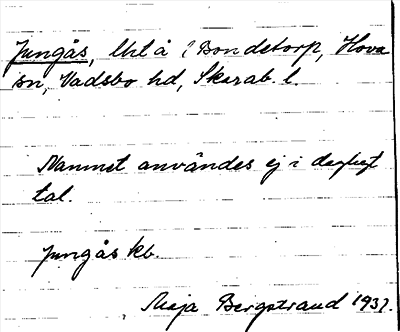 Jungås, lht å i Bondetorp, Hova
sn, Vadsbo hd, Skarab. l.
Namnet användes ej i dagligt
tal.
Jungås kb.
Maja Bergstrand 1937.